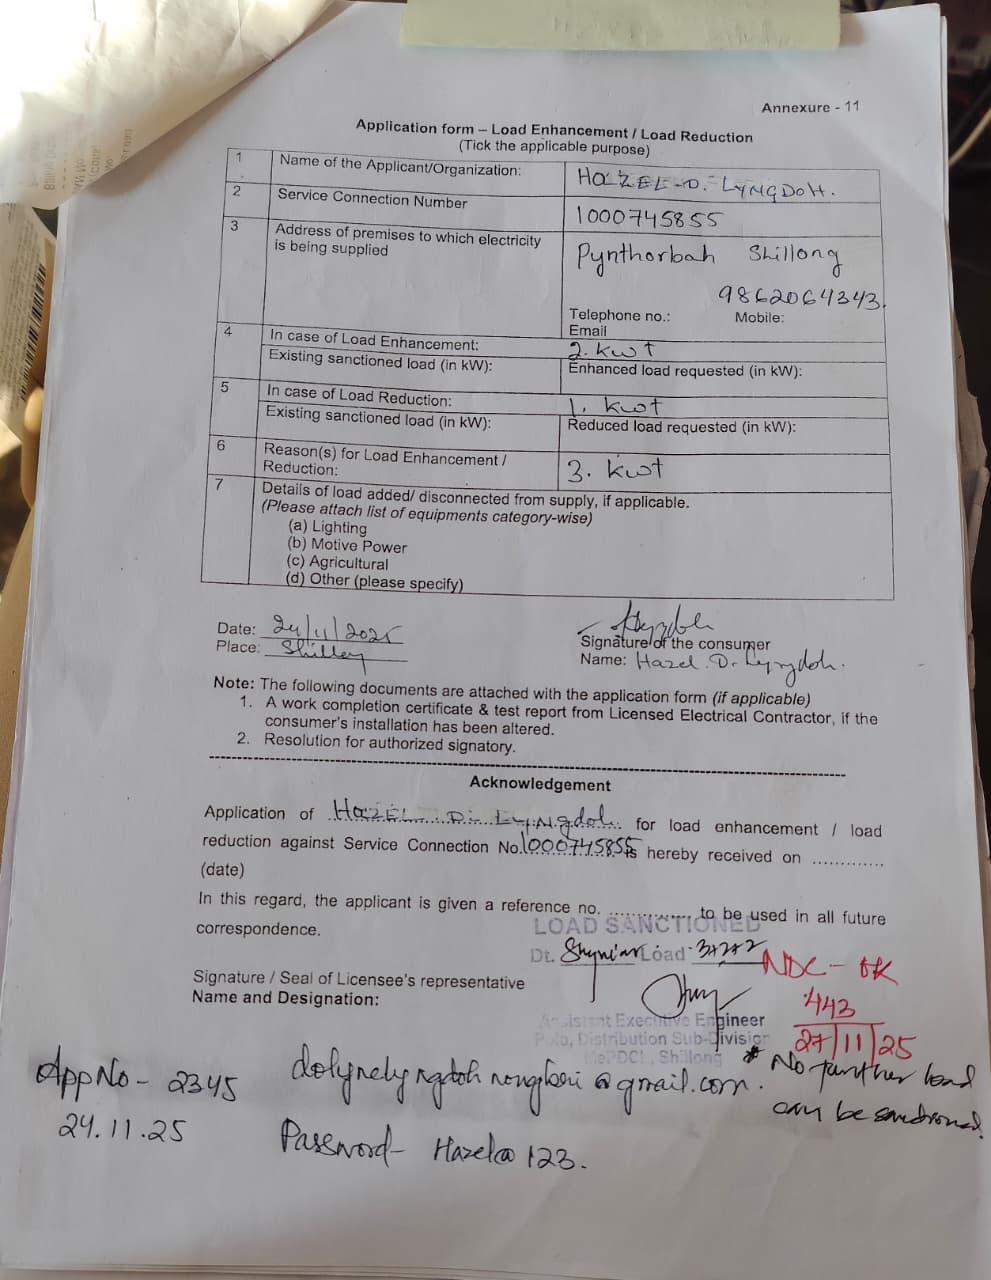 Annexure - 11
Application form – Load Enhancement / Load Reduction
(Tick the applicable purpose)
1 Name of the Applicant/Organization: HAZEL D. LYNGDOH.
2 Service Connection Number 1000745855
3 Address of premises to which electricity is being supplied Pynthorbah Shillong
9862064343.
Telephone no.: Mobile:
Email
4 In case of Load Enhancement: 2. kwt
Existing sanctioned load (in kW): Enhanced load requested (in kW):
5 In case of Load Reduction: 1. kwt
Existing sanctioned load (in kW): Reduced load requested (in kW):
6 Reason(s) for Load Enhancement /
Reduction: 3. kwt
7 Details of load added/ disconnected from supply, if applicable.
(Please attach list of equipments category-wise)
(a) Lighting
(b) Motive Power
(c) Agricultural
(d) Other (please specify)
Date: 24/11/2025
Place: Shillong
Signature of the consumer
Name: Hazel. D. Lyngdoh.
Note: The following documents are attached with the application form (if applicable)
1. A work completion certificate & test report from Licensed Electrical Contractor, if the
consumer's installation has been altered.
2. Resolution for authorized signatory.
Acknowledgement
Application of HAZEL D. Lyngdoh for load enhancement / load
reduction against Service Connection No. 1000745855 is hereby received on .............
(date)
In this regard, the applicant is given a reference no. ............. to be used in all future
correspondence.
LOAD SANCTIONED
Dt. Load
NDC - OK
443
27/11/25
Signature / Seal of Licensee's representative
Name and Designation:
Assistant Executive Engineer
Polo, Distribution Sub-Division
MePDCL, Shillong
* No further load
can be sanctioned.
App No - 2345
24.11.25
dolynelyngdohnongbri@gmail.com.
Password- Hazel@123.